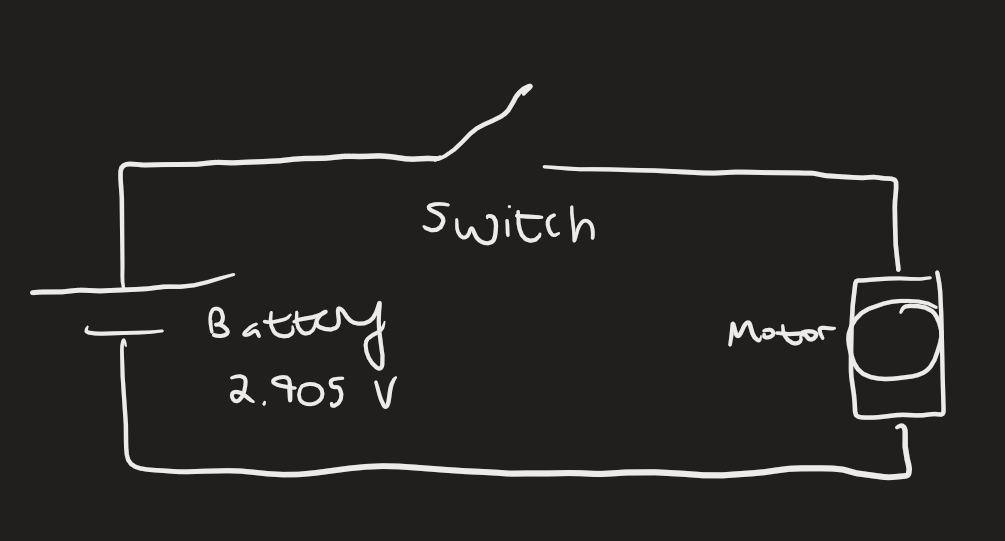 Switch
Battery
2.905 V
Motor